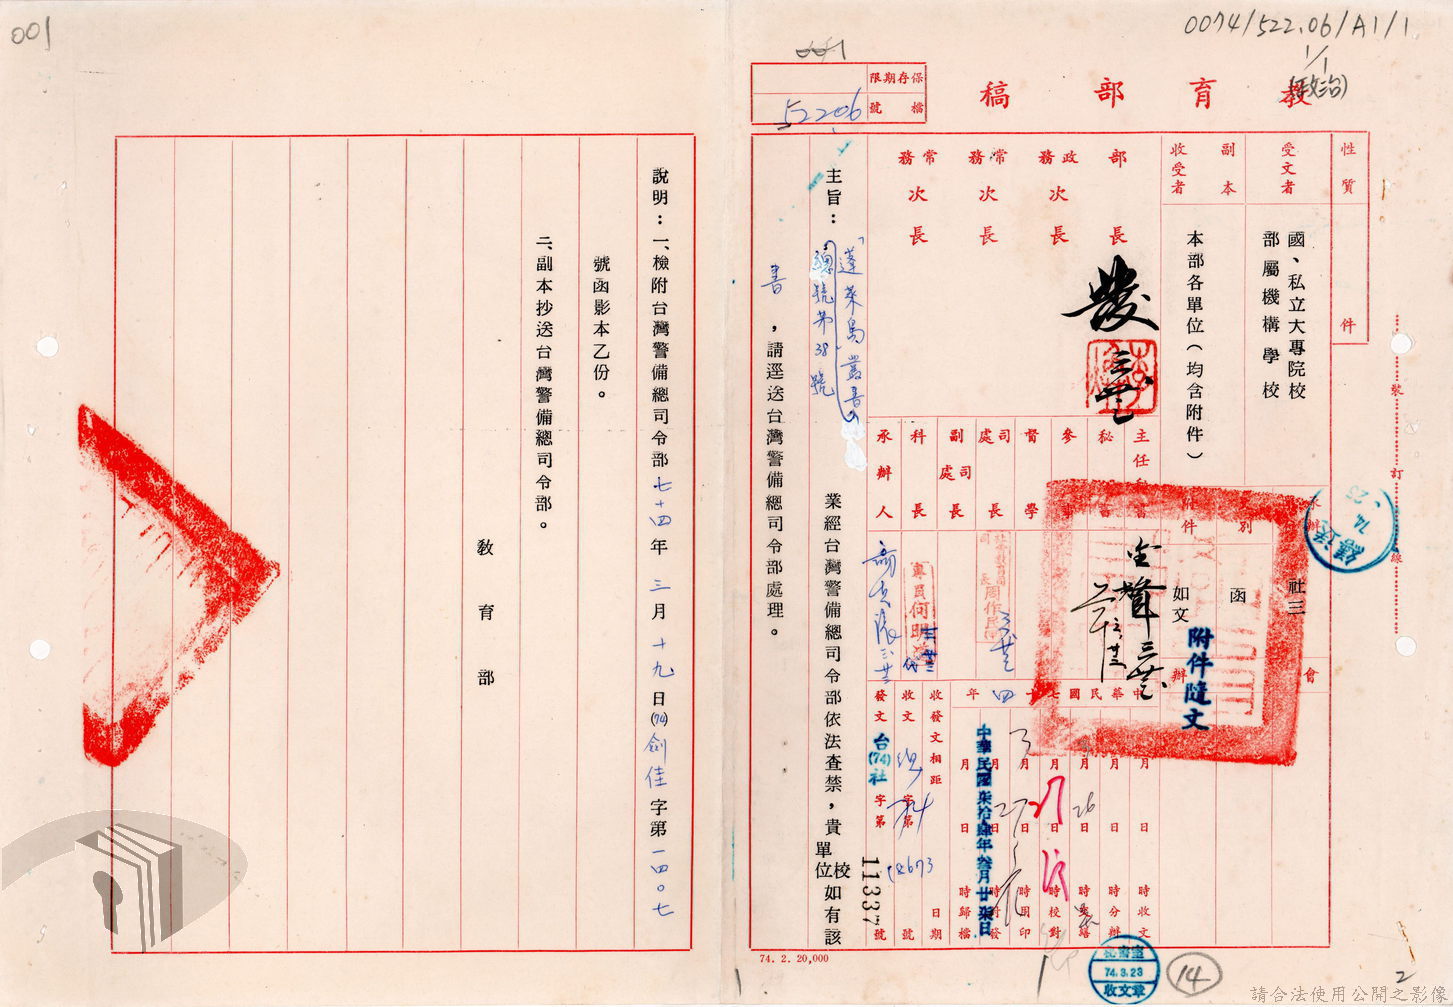 001
0074/522.06/A1/1
1/1
(政治)
001
保存期限
檔號
52206
教育部稿
性質
件
受文者
國、私立大專院校
部屬機構學校
副本收受者
本部各單位（均含附件）
部長
政務次長
常務次長
常務次長
主任秘書
秘書
參事
督學
司處長
副司處長
科長
承辦人
附件
如文
別
函
社三
會辦
附件隨文
繕送
74.
裝
訂
線
主旨：「蓬萊島叢書」總號第38號業經台灣警備總司令部依法查禁，貴單位校如有該
書，請逕送台灣警備總司令部處理。
中華民國七十四年
月日時收文
月日時分辦
月日時校對
月日時用印
月日時歸檔
26
27
中華民國柒拾肆年叁月廿柒日
收發文相距
日期
收文
字第
號
發文
台(74)社
字第
11337
號
74. 2. 20,000
秘書室
74.3.23
收文章
14
2
說明：一、檢附台灣警備總司令部七十四年三月十九日(74)劍佳字第一四〇七
號函影本乙份。
二、副本抄送台灣警備總司令部。
教育部
請合法使用公開之影像